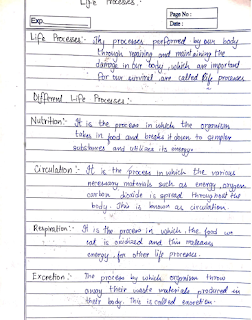 Life Processes :-
Page No :
Exp.
Date :
Life Processes :- The processes performed by our body
through repairing and maintaining the
damage in our body, which are important
for our survival, are called life processes
Different Life Processes :-
Nutrition :- It is the process in which the organism
takes in food and breaks it down to simpler
substances and utilizes its energy.
Circulation :- It is the process in which the various
necessary materials such as energy, oxygen
carbon dioxide is spread throughout the
body. This is known as circulation.
Respiration :- It is the process in which, the food we
eat is oxidised and this releases
energy, for other life processes.
Excretion :- The process by which organism throw
away their waste materials produced in
their body. This is called excretion.